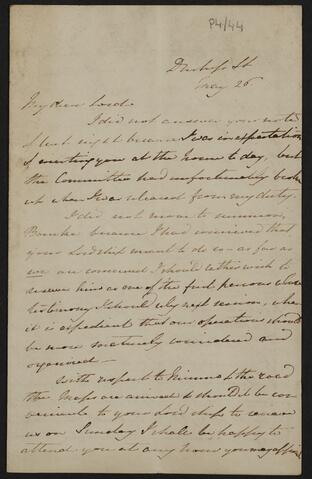 P4/44
May 26
My dear Lord
I did not answer your note
of last night because I was in expectation
of meeting you at the House to day, but
the Committee had unfortunately broke
up when I was released from my duty.
I did not move to summon
because I had conceived that
your Lordship meant to do so – as far as
we are concerned I should rather wish to
reserve him as one of the first persons whose
testimony I should rely next session, when
it is expedient that our operations should
be more maturely considered and
organized –
With respect to & the road
the Maps are arrived & should it be con
venient to your Lordship to receive
us on Sunday I shall be happy to
attend you at any hour you may appoint